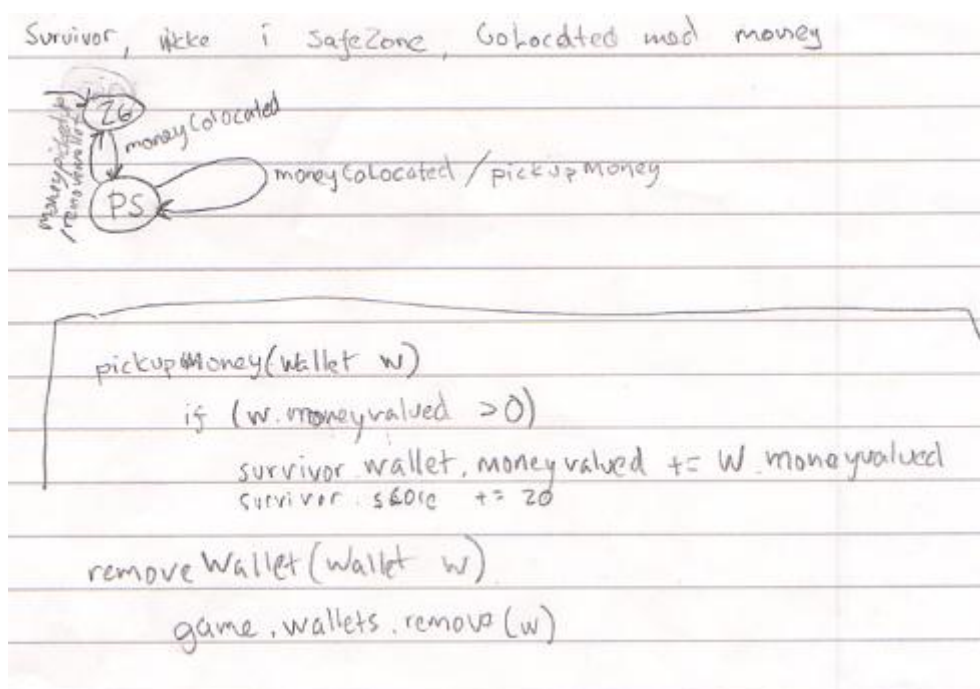 Survivor, ikke i SafeZone, CoLocated med money
ZG
moneyColocated
moneypickedup
/removewallet
PS
moneyCoLocated / pickupMoney
pickupMoney(wallet w)
if (w.moneyvalued >0)
survivor.wallet.moneyvalued += w.moneyvalued
survivor.score += 20
removeWallet(Wallet w)
game.wallets.remove(w)